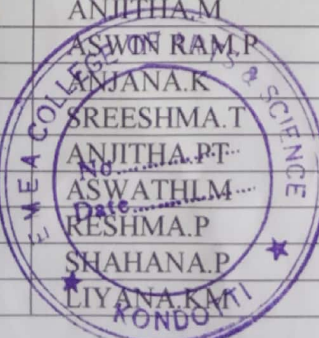 ANJITHA.M
ASWIN RAM.P
ANJANA.K
SREESHMA.T
ANJITHA.PT
ASWATHI.M
RESHMA.P
SHAHANA.P
LIYANA.KM
E M E A COLLEGE OF ARTS & SCIENCE
No
Date
KONDOTTI